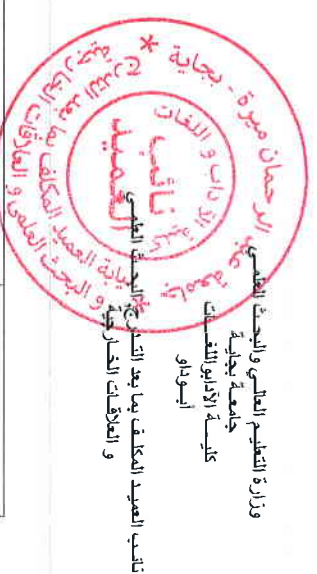 وزارة التعليم العالي والبحث العلمي
جامعة بجاية
كليـــة الآداب واللغـــات
أبـــوداو
نائب العميد المكلف بما بعد التدرج والبحث العلمي
و العلاقات الخارجية
جامعة عبد الرحمان ميرة - بجاية *
كلية الآداب و اللغات
نيابة العميد المكلف بما بعد التدرج
و البحث العلمي و العلاقات الخارجية
نائب
العميد